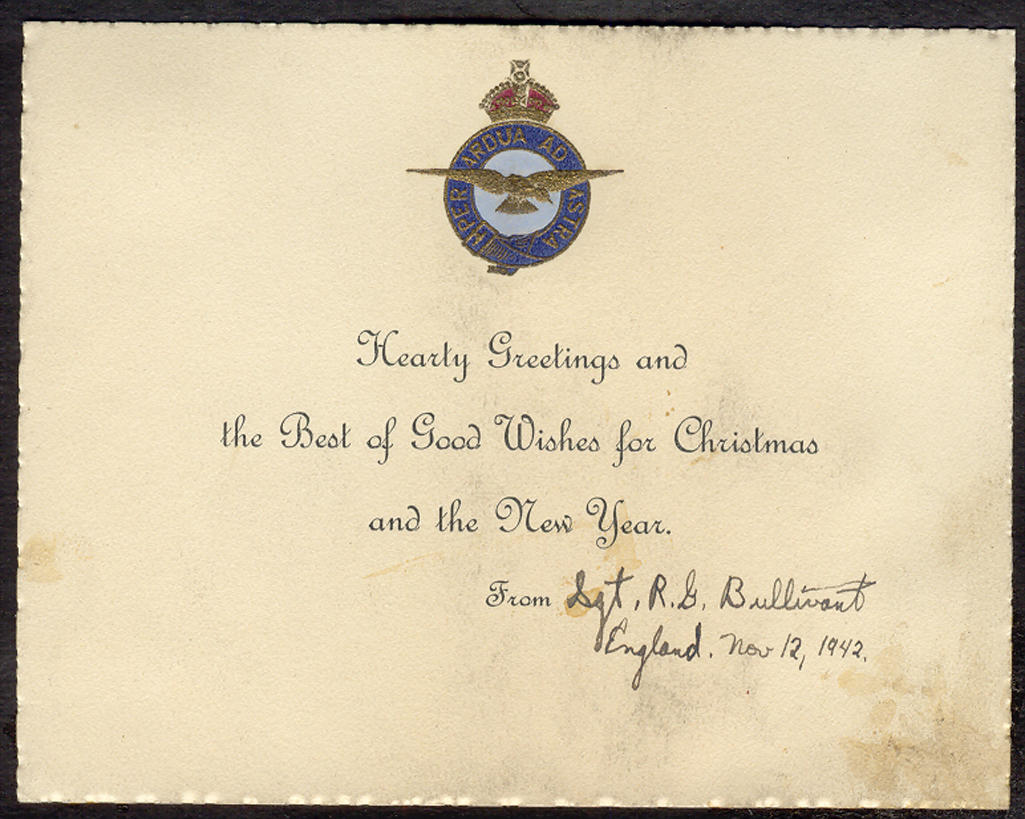 PER ARDUA AD ASTRA
Hearty Greetings and
the Best of Good Wishes for Christmas
and the New Year.
From Sgt, R.G. Bullivant
England. Nov 12, 1942.